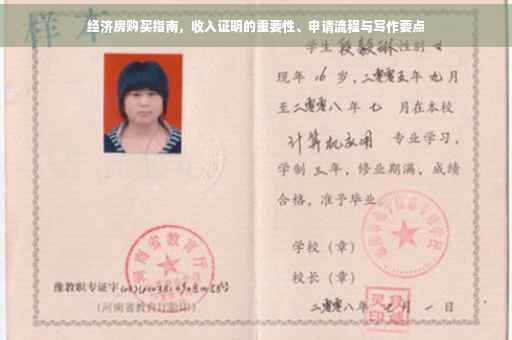 经济房购买指南，收入证明的重要性、申请流程与写作要点
样本
学生段毅琳性别女
现年16岁，二零零五年九月
至二零零八年七月在本校
计算机应用 专业学习，
学制三年，修业期满，成绩
合格，准予毕业
学校（章）
校长（章）
二零零八年七月一日
河南省教育厅
豫教职专证字
(河南省教育厅验印)